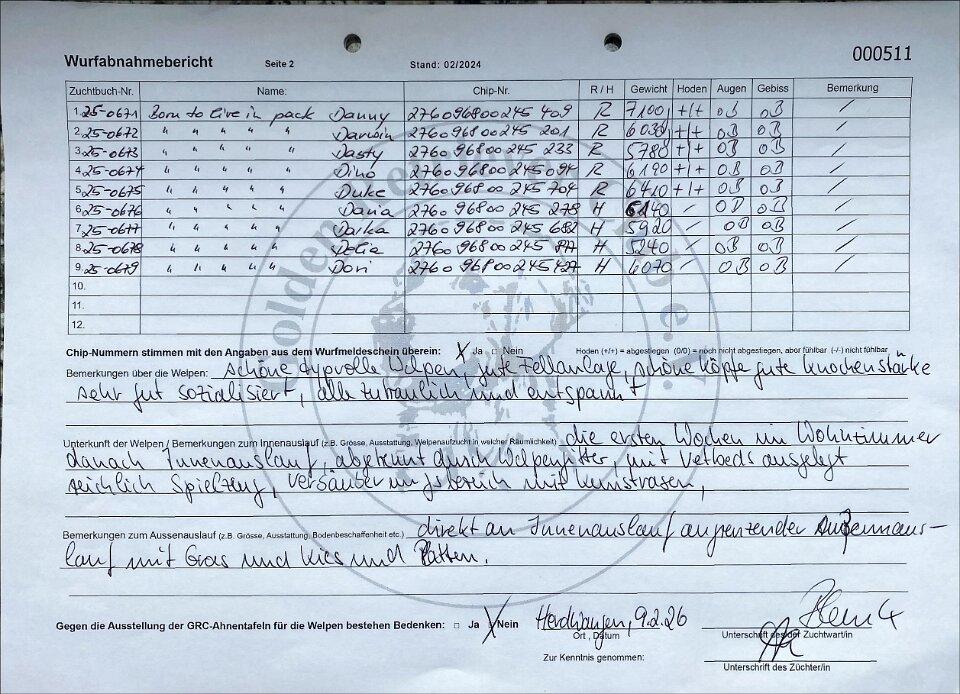 Wurfabnahmebericht Seite 2 Stand: 02/2024 000511
Zuchtbuch-Nr. Name: Chip-Nr. R / H Gewicht Hoden Augen Gebiss Bemerkung
1. 25-0671 Born to live in pack Danny 276096800245 409 R 7100 +/+ oB oB /
2. 25-0672 " " " " " Darwin 276096800245 201 R 6030 +/+ oB oB /
3. 25-0673 " " " " " Dasty 276096800245 233 R 5780 +/+ oB oB /
4. 25-0674 " " " " " Dino 276096800245 094 R 6190 +/+ oB oB /
5. 25-0675 " " " " " Duke 276096800245 704 R 6410 +/+ oB oB /
6. 25-0676 " " " " " Dana 276096800245 278 H 6240 / oB oB /
7. 25-0677 " " " " " Darka 276096800245 682 H 5920 / oB oB /
8. 25-0678 " " " " " Delia 276096800245 H 5240 / oB oB /
9. 25-0679 " " " " " Dori 276096800245 427 H 6070 / oB oB /
10.
11.
12.
Chip-Nummern stimmen mit den Angaben aus dem Wurfmeldeschein überein: X Ja □ Nein Hoden (+/+) = abgestiegen (0/0) = noch nicht abgestiegen, aber fühlbar (-/-) nicht fühlbar
Bemerkungen über die Welpen: schöne typvolle Welpen, gute Fellanlage, schöne Köpfe gute Knochenstärke
sehr gut sozialisiert, alle zutraulich und entspannt
Unterkunft der Welpen / Bemerkungen zum Innenauslauf (z.B. Grösse, Ausstattung, Welpenaufzucht in welcher Räumlichkeit) die ersten Wochen im Wohnzimmer
danach Innenauslauf, abgetrennt durch Welpengitter, mit Vetbeds ausgelegt
reichlich Spielzeug, Versäuberungsbereich mit Kunstrasen,
Bemerkungen zum Aussenauslauf (z.B. Grösse, Ausstattung, Bodenbeschaffenheit etc.) direkt an Innenauslauf angrenzender Außenaus-
lauf mit Gras und Kies und Platten.
Gegen die Ausstellung der GRC-Ahnentafeln für die Welpen bestehen Bedenken: □ Ja X Nein Herdhausen, 9.2.26
Ort, Datum Unterschrift des der Zuchtwart/in
Zur Kenntnis genommen:
Unterschrift des Züchter/in